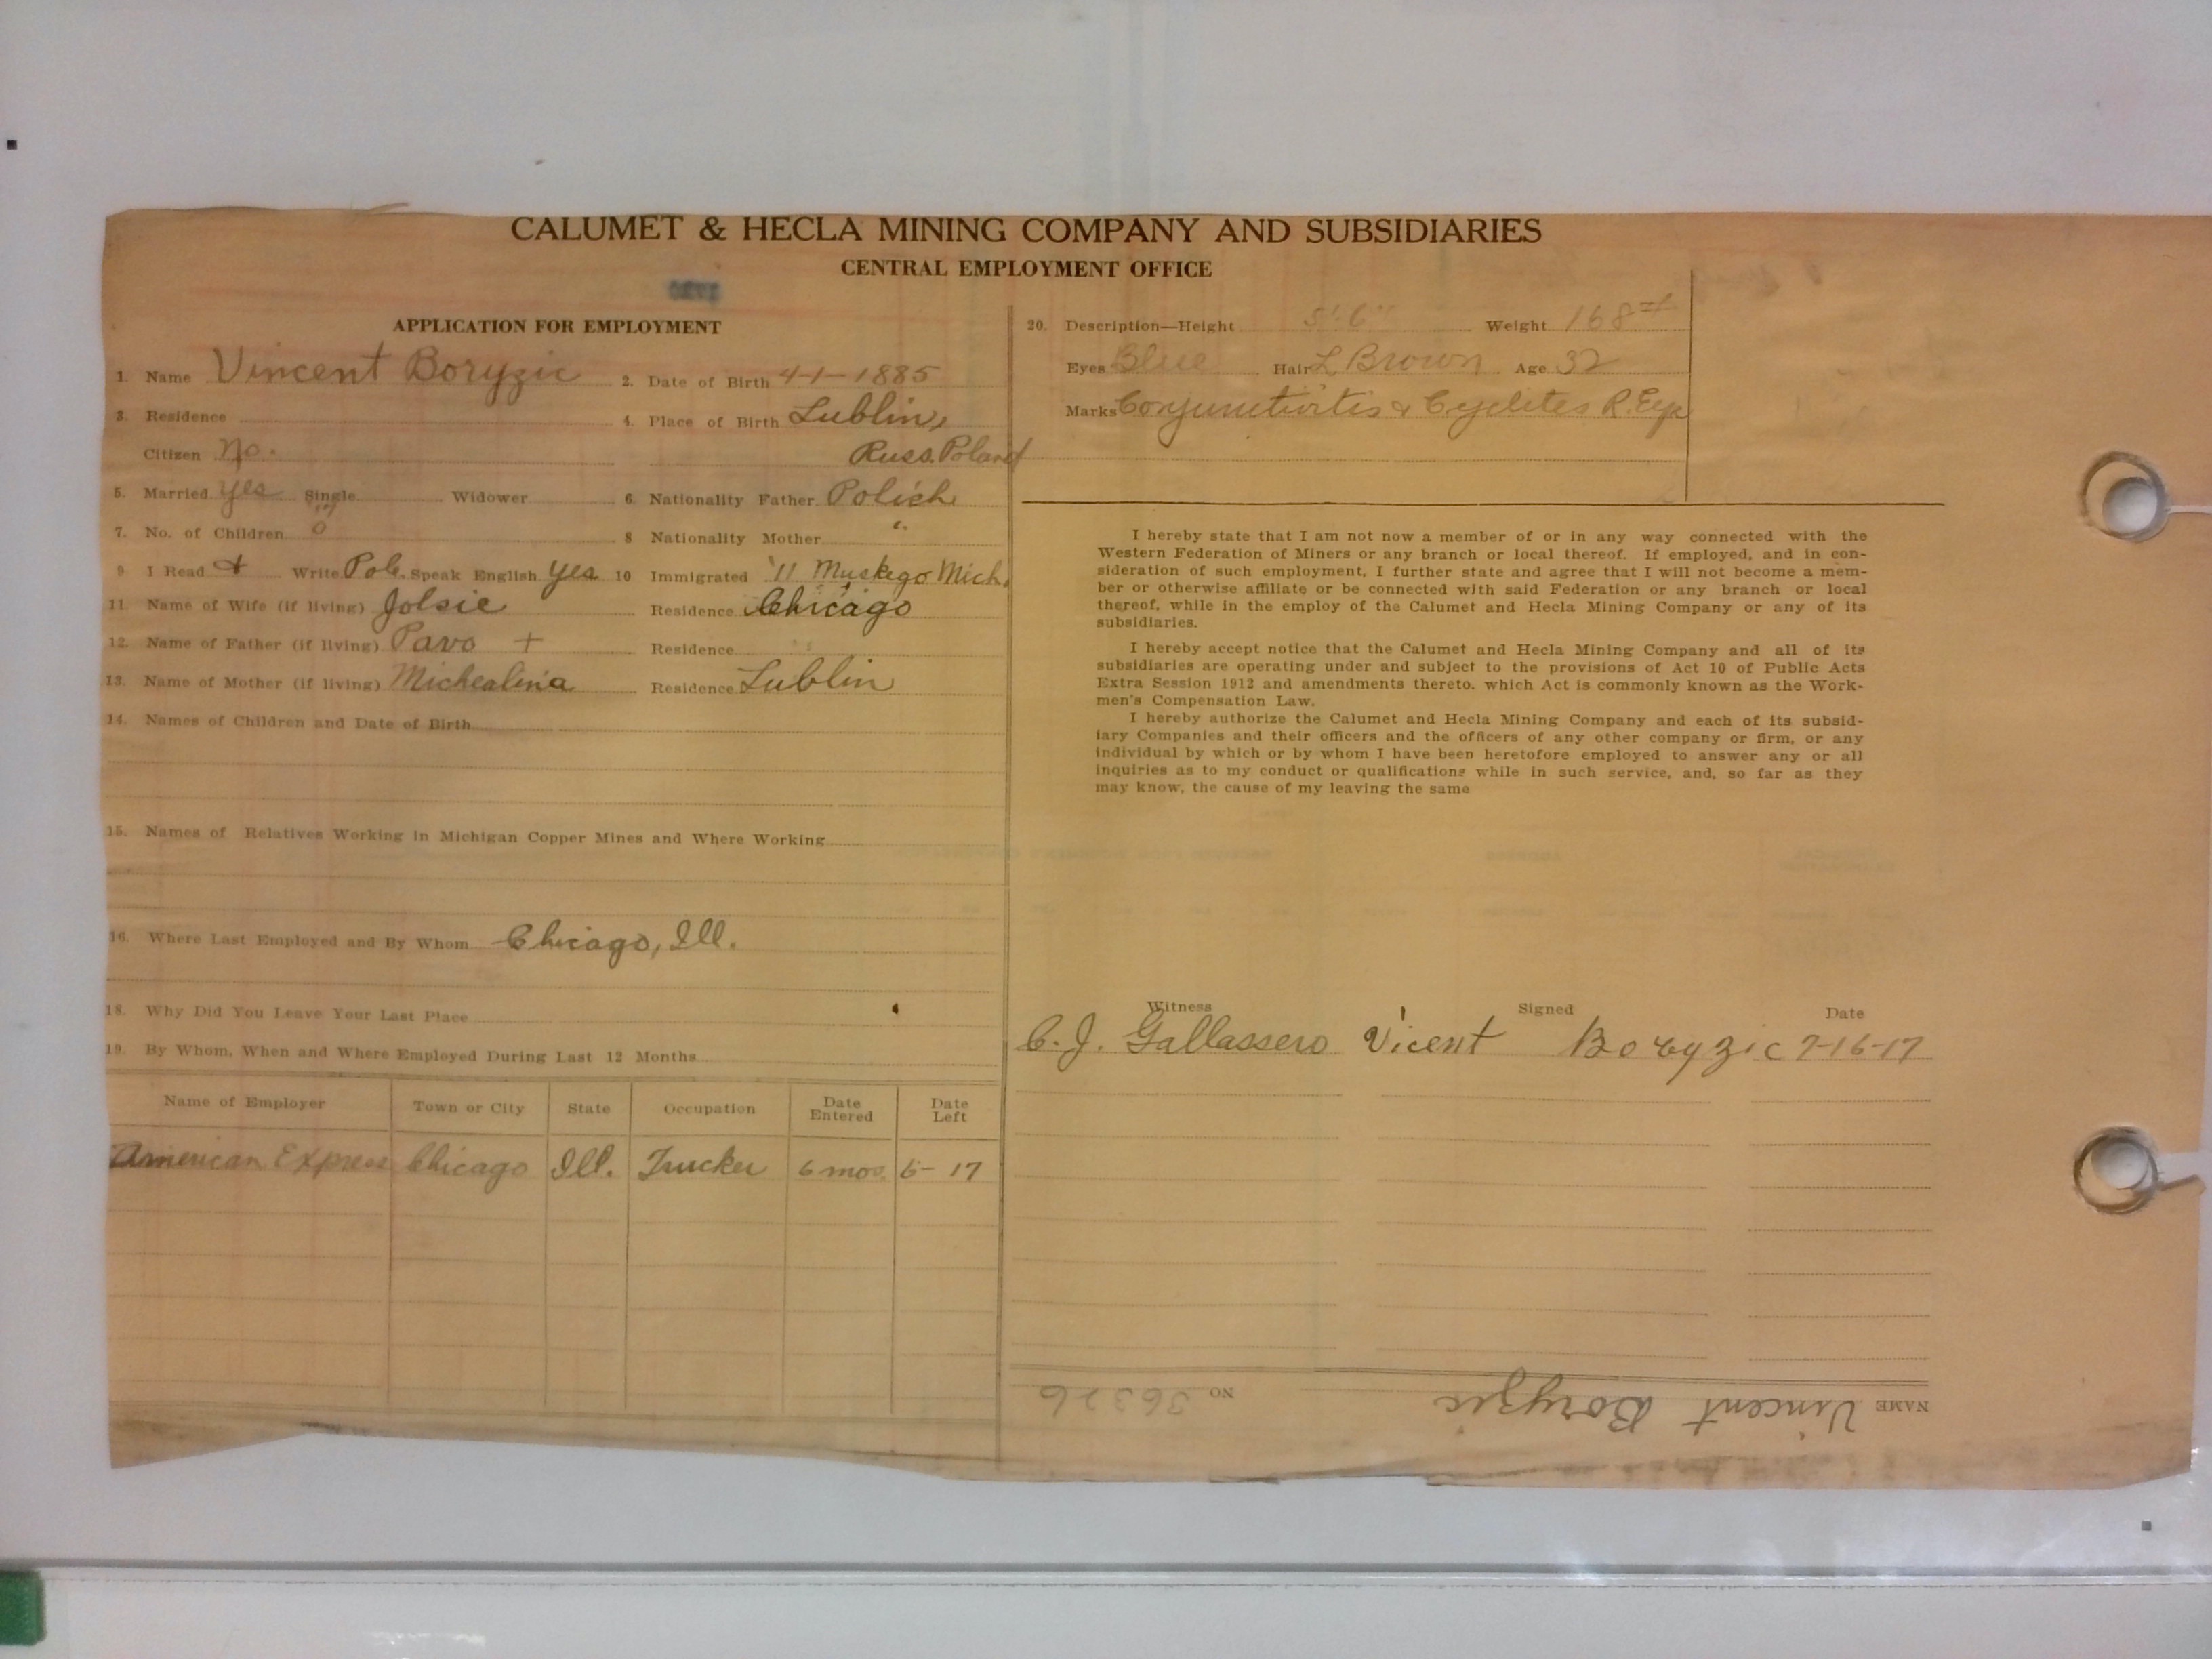 CALUMET & HECLA MINING COMPANY AND SUBSIDIARIES
CENTRAL EMPLOYMENT OFFICE
APPLICATION FOR EMPLOYMENT
1. Name Vincent Boryzic 2. Date of Birth 4-1-1885
3. Residence 4. Place of Birth Lublin,
Citizen No. Russ. Poland
5. Married yes Single Widower 6 Nationality Father Polich
7. No. of Children 0 8 Nationality Mother "
9 I Read + Write Pol. Speak English yes 10 Immigrated '11 Muskego Mich.
11. Name of Wife (if living) Jolsie Residence Chicago
12. Name of Father (if living) Pavo + Residence
13. Name of Mother (if living) Michealina Residence Lublin
14. Names of Children and Date of Birth
15. Names of Relatives Working in Michigan Copper Mines and Where Working
16. Where Last Employed and By Whom Chicago, Ill.
18. Why Did You Leave Your Last Place
19. By Whom, When and Where Employed During Last 12 Months
Name of Employer Town or City State Occupation Date Entered Date Left
American Express Chicago Ill. Trucker 6 mos. 6- 17
20. Description—Height 5'-6" Weight 168#
Eyes Blue Hair L Brown Age 32
Marks Conjunctivitis & Cyclites R. Eye
I hereby state that I am not now a member of or in any way connected with the
Western Federation of Miners or any branch or local thereof. If employed, and in con-
sideration of such employment, I further state and agree that I will not become a mem-
ber or otherwise affiliate or be connected with said Federation or any branch or local
thereof, while in the employ of the Calumet and Hecla Mining Company or any of its
subsidiaries.
I hereby accept notice that the Calumet and Hecla Mining Company and all of its
subsidiaries are operating under and subject to the provisions of Act 10 of Public Acts
Extra Session 1912 and amendments thereto. which Act is commonly known as the Work-
men's Compensation Law.
I hereby authorize the Calumet and Hecla Mining Company and each of its subsid-
iary Companies and their officers and the officers of any other company or firm, or any
individual by which or by whom I have been heretofore employed to answer any or all
inquiries as to my conduct or qualifications while in such service, and, so far as they
may know, the cause of my leaving the same
Witness Signed Date
C. J. Gallassero Vicent Boryzic 7-16-17
NAME Vincent Boryzic NO 36326